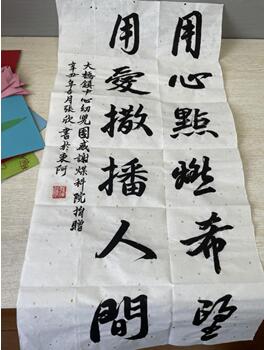 用心點燃希望
用愛撒播人間
大橋鎮中心幼兒園感謝煤科院捐贈
辛丑年六月張欣書於東阿